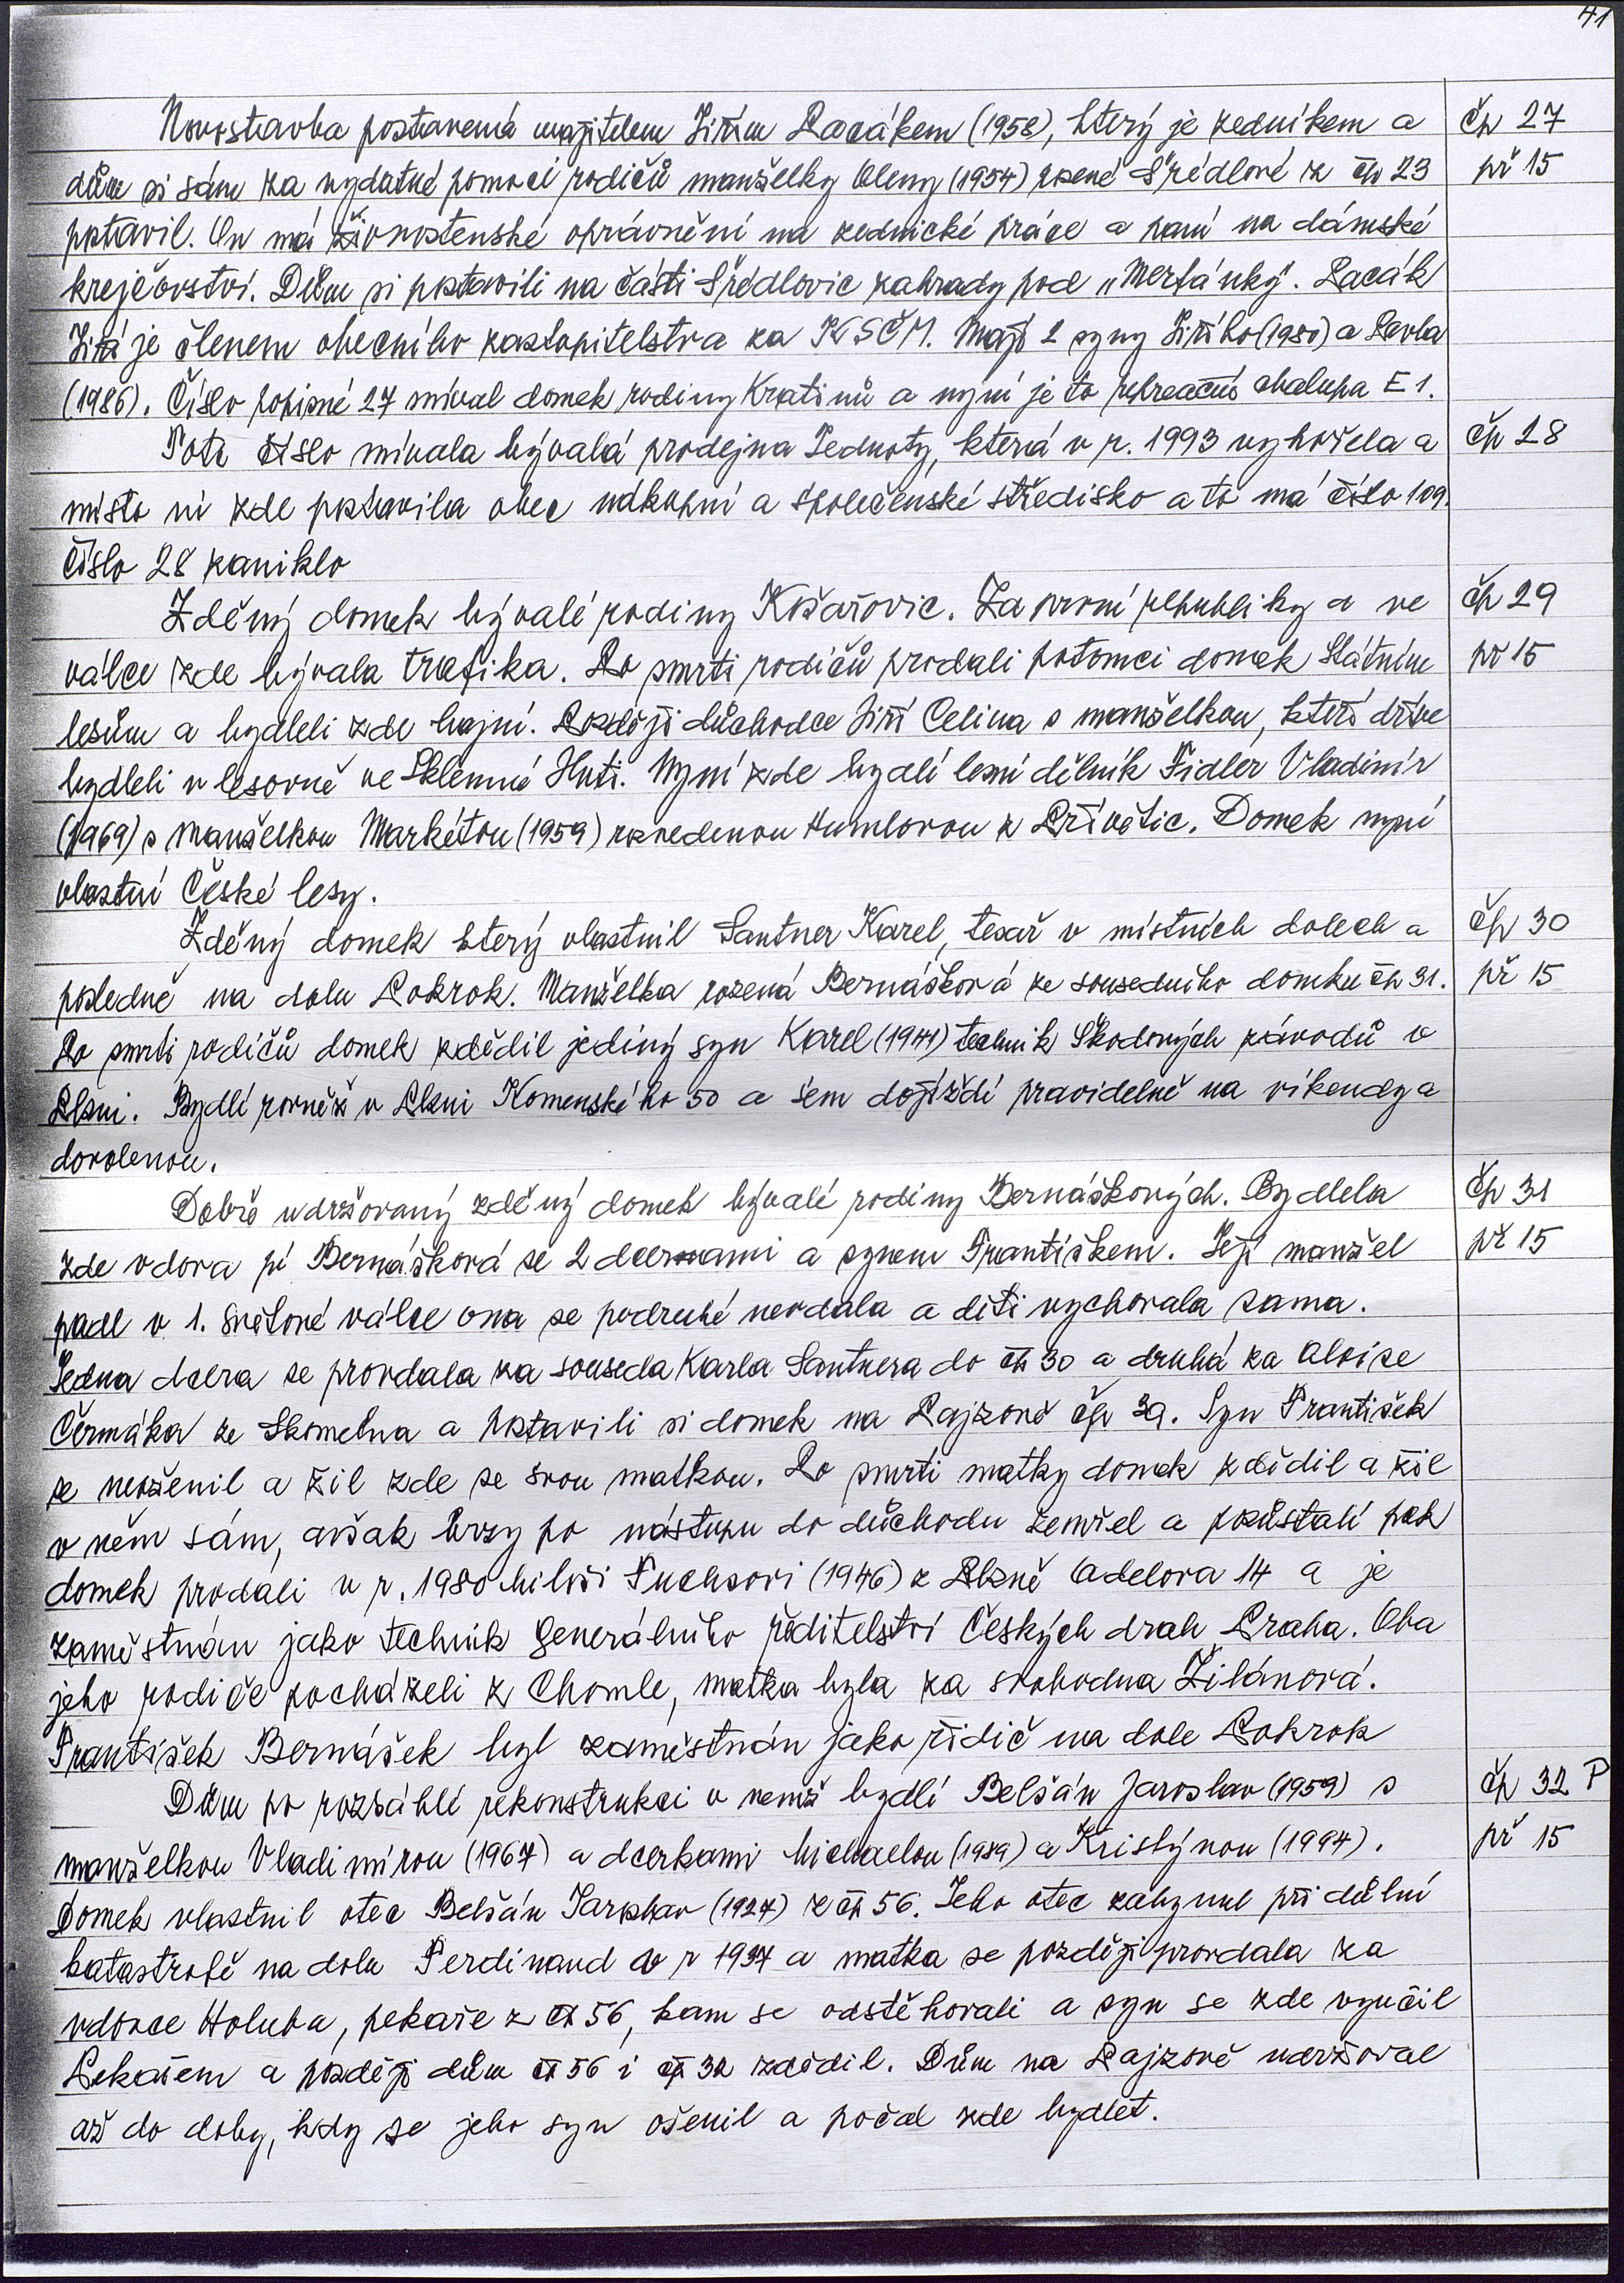 41
Novostavba postavená majitelem Jiřím Pacákem (1958), který je zedníkem a čp 27
dům si sám za vydatné pomoci rodičů manželky Aleny (1954) rozené Šrédlové z čp 23 př 15
postavil. On má živnostenské oprávnění na zednické práce a paní na dámské
krejčovství. Dům si postavili na části Šrédlovic zahrady pod „Mertánky". Pacák
Jiří je členem obecního zastupitelstva za KSČM. Mají 2 syny Jiřího (1980) a Pavla
(1986). Číslo popisné 27 míval domek rodiny Kratinů a nyní je to rekreační chalupa E 1.
Toto číslo mívala bývalá prodejna Jednoty, která v r. 1993 vyhořela a čp 28
místo ní zde postavila obec nákupní a společenské středisko a to má číslo 109.
Číslo 28 zaniklo
Zděný domek bývalé rodiny Košařovic. Za první republiky a ve čp 29
válce zde bývala trafika. Po smrti rodičů prodali potomci domek Státním př 15
lesům a bydleli zde hajní. Později důchodce Jiří Celina s manželkou, kteří dříve
bydleli v lesovně ve Sklenné Huti. Nyní zde bydlí lesní dělník Fidler Vladimír
(1969) s manželkou Markétou (1959) rozvedenou Humlovou z Přívětic. Domek nyní
vlastní České lesy.
Zděný domek který vlastnil Santner Karel, tesař v místních dolech a čp 30
posledně na dolu Pokrok. Manželka rozená Bernášková ze sousedního domku čp 31. př 15
Po smrti rodičů domek zdědil jediný syn Karel (1941) technik Škodových závodů v
Plzni. Bydlí rovněž v Plzni Komenského 50 a sem dojíždí pravidelně na víkendy a
dovolenou.
Dobře udržovaný zděný domek bývalé rodiny Bernáškových. Bydlela čp 31
zde vdova pí Bernášková se 2 dcerami a synem Františkem. Její manžel př 15
padl v 1. světové válce ona se podruhé nevdala a děti vychovala sama.
Jedna dcera se provdala za souseda Karla Santnera do čp 30 a druhá za Aloise
Čermáka ze Skomelna a postavili si domek na Pajzově čp 39. Syn František
se neoženil a žil zde se svou matkou. Po smrti matky domek zdědil a žil
v něm sám, avšak brzy po nástupu do důchodu zemřel a pozůstalí pak
domek prodali v r. 1980 Miloši Fuchsovi (1946) z Plzně Adelova 14 a je
zaměstnán jako technik Generálního ředitelství Českých drah Praha. Oba
jeho rodiče pocházeli z Chomle, matka byla za svobodna Žilánová.
František Bernášek byl zaměstnán jako řidič na dole Pokrok
Dům po rozsáhlé rekonstrukci v nemž bydlí Belšán Jaroslav (1959) s čp 32 P
manželkou Vladimírou (1967) a dcerkami Michaelou (1989) a Kristýnou (1994). př 15
Domek vlastnil otec Belšán Jaroslav (1927) z čp 56. Jeho otec zahynul při důlní
katastrofě na dolu Ferdinand v r 1937 a matka se později provdala za
vdovce Holuba, pekaře z čp 56, kam se odstěhovali a syn se zde vyučil
Pekařem a později dům čp 56 i čp 32 zdědil. Dům na Pajzově udržoval
až do doby, kdy se jeho syn oženil a počal zde bydlet.